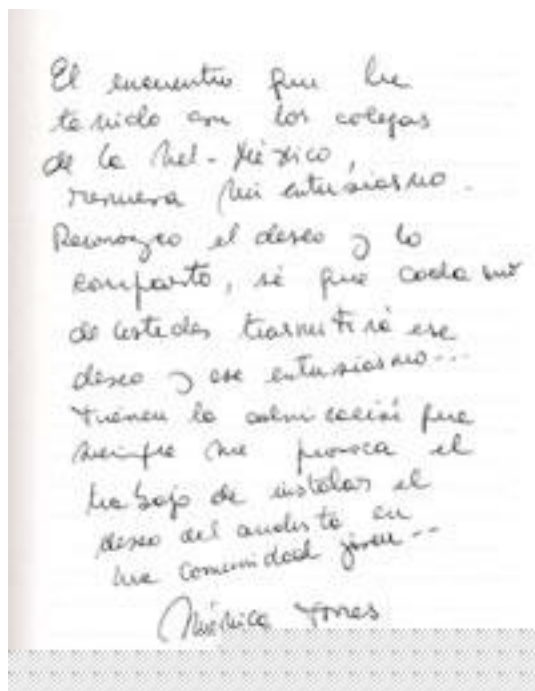 El encuentro que he
tenido con los colegas
de la Nel-México,
renueva mi entusiasmo.
Reconozco el deseo y lo
comparto, sé que cada uno
de ustedes trasmitirá ese
deseo y ese entusiasmo...
tienen la admiración que
siempre me provoca el
trabajo de instalar el
deseo del analista en
una comunidad joven--
Mónica Torres